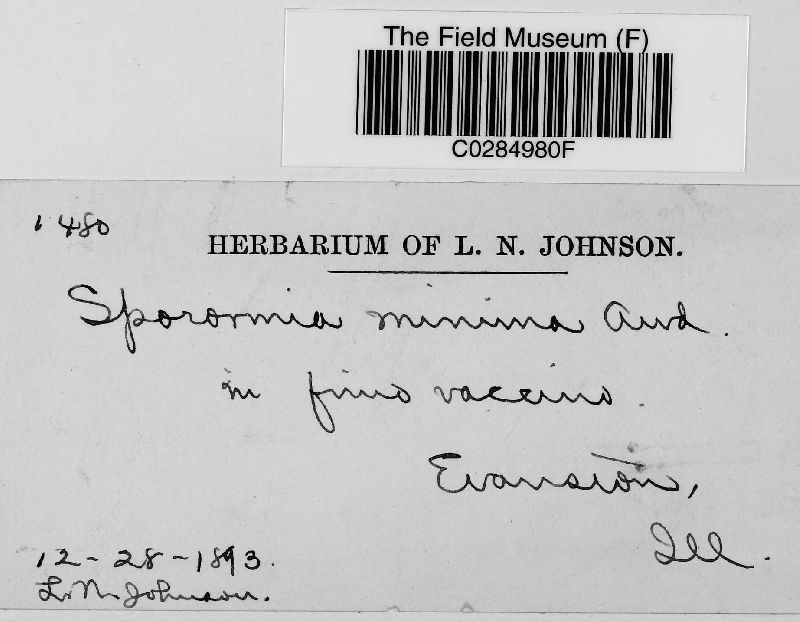 The Field Museum (F)
C0284980F
1480
HERBARIUM OF L. N. JOHNSON.
Sporormia minima Awd.
in fimo vaccino.
Evanston,
Ill.
12-28-1893.
L. N. Johnson.